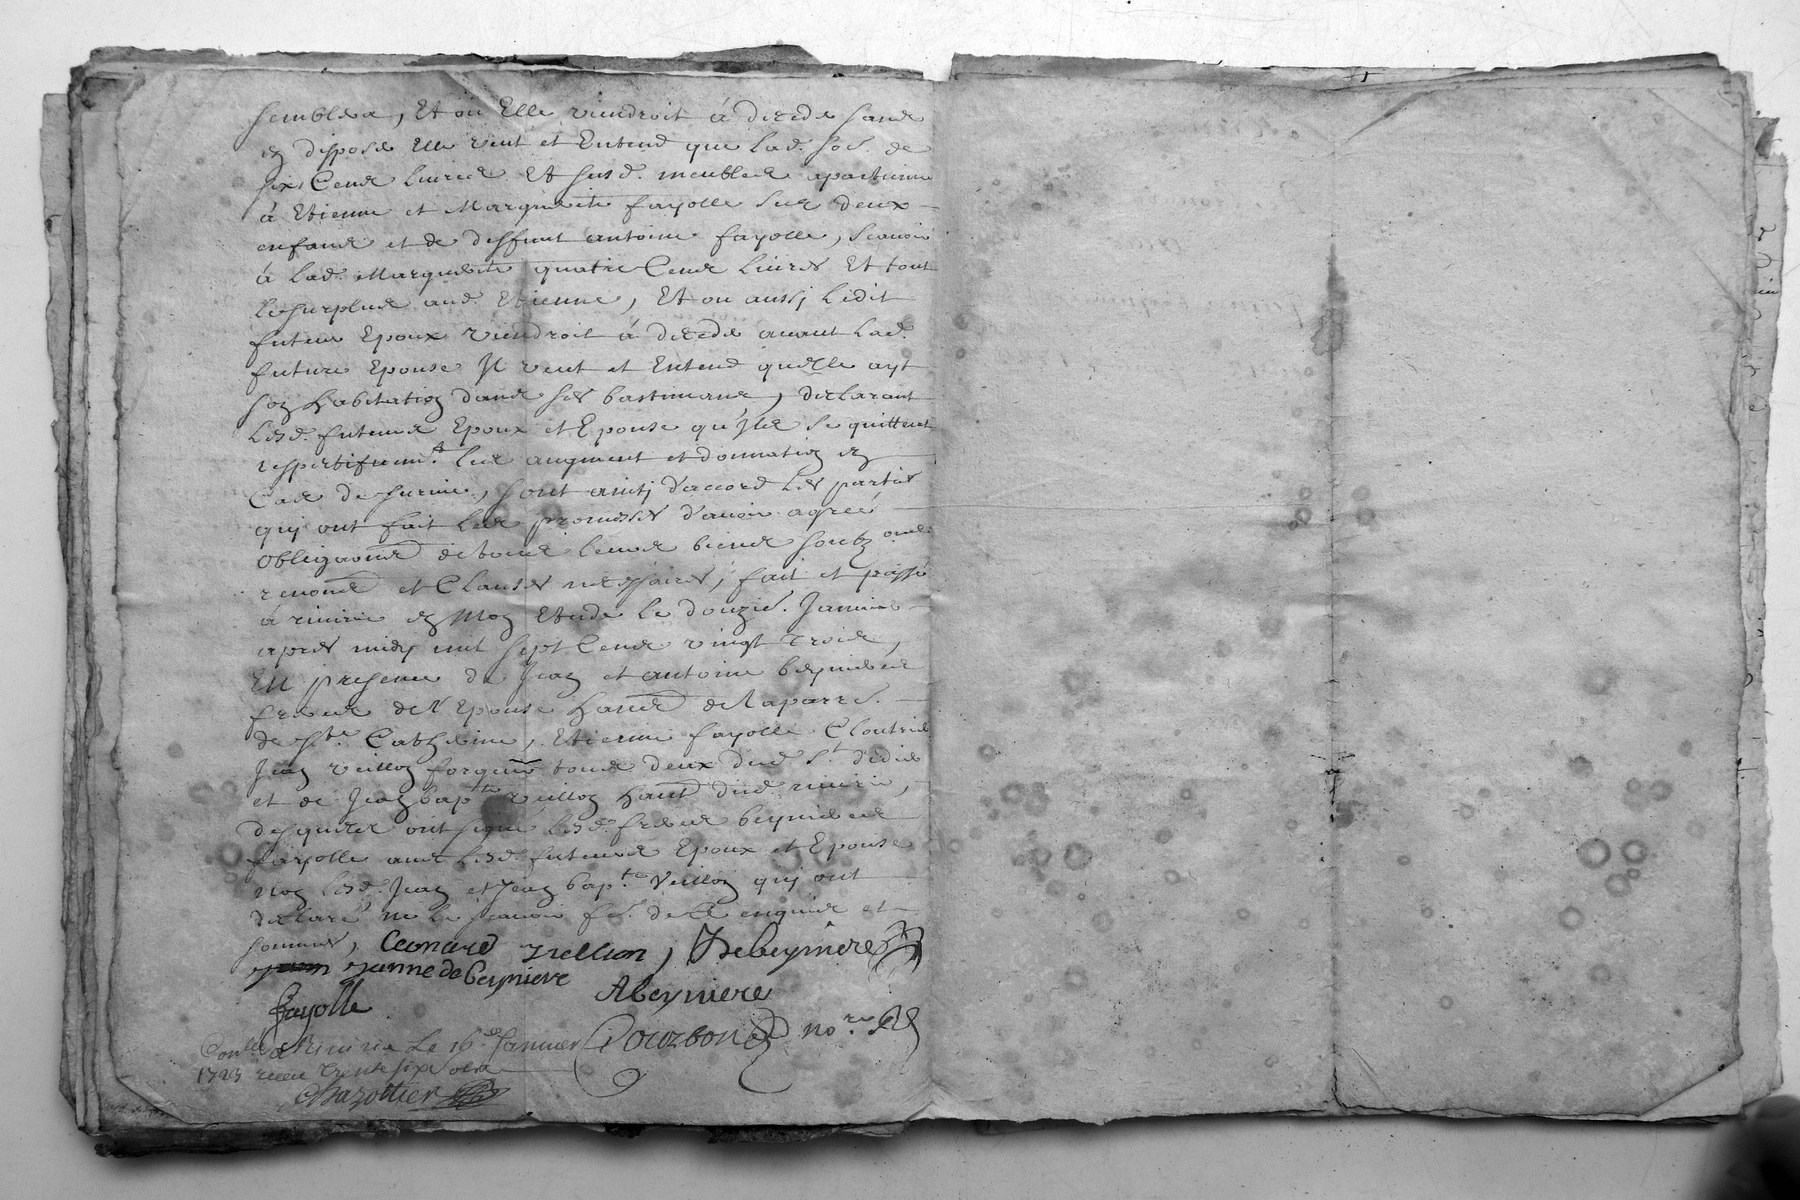 semblera, Et ou Elle viendroit á deceder sans
en disposer Elle veut et Entend que lad. so&. de
six Cens livres Et susd. meubles apartienne
á Etienne et Marguerite fayolle ses deux
enfans et de deffunt antoine fayolle, scauoir
á lad. Marguerite quatre Cens livres Et tout
le surplus aud. Etienne, Et ou aussy ledit
futeur Epoux viendroit á deceder auant lad.
future Epouse Il veut et Entend quelle ayt
son habitation dans ses bastimans, declarant
lesd. futeurs Epoux et Epouse qu'Ils se quittent
respectifuemt. les augment et donnation en
Cas de suruie, sont ainsy d'accord les parties
quy ont fait les promesses d'auoir agreé
obligaons de tous leurs biens soubz
renons et Clauses nessessaires, fait et passé
á riuirie en Mon Etude le douzie. Januier
apres midy mil sept Cens vingt trois,
En presence de Jean et antoine beyniere
freres de l'Epouse hans de laparre.
de Ste. Catherine, Etienne fayolle Cloutrier
Jean veillon forgeur tous deux dud. St. didier
et de Jean bapte veillon hant dud. riuirie,
desquels ont signé lesd. freres beyniere
fayolle auec lesd. futeurs Epoux et Epouse
non lesd. Jean et Jean bap.te Veillon quy ont
declaré ne le scauoir de ce enquis et
sommés, Leonard Debeyniere
Janne de beyniere
Abeyniere
fayolle
Bourbon nore
Conllé a Riuirie le 16e Januier
1723 receu trente six sols
Chazottier